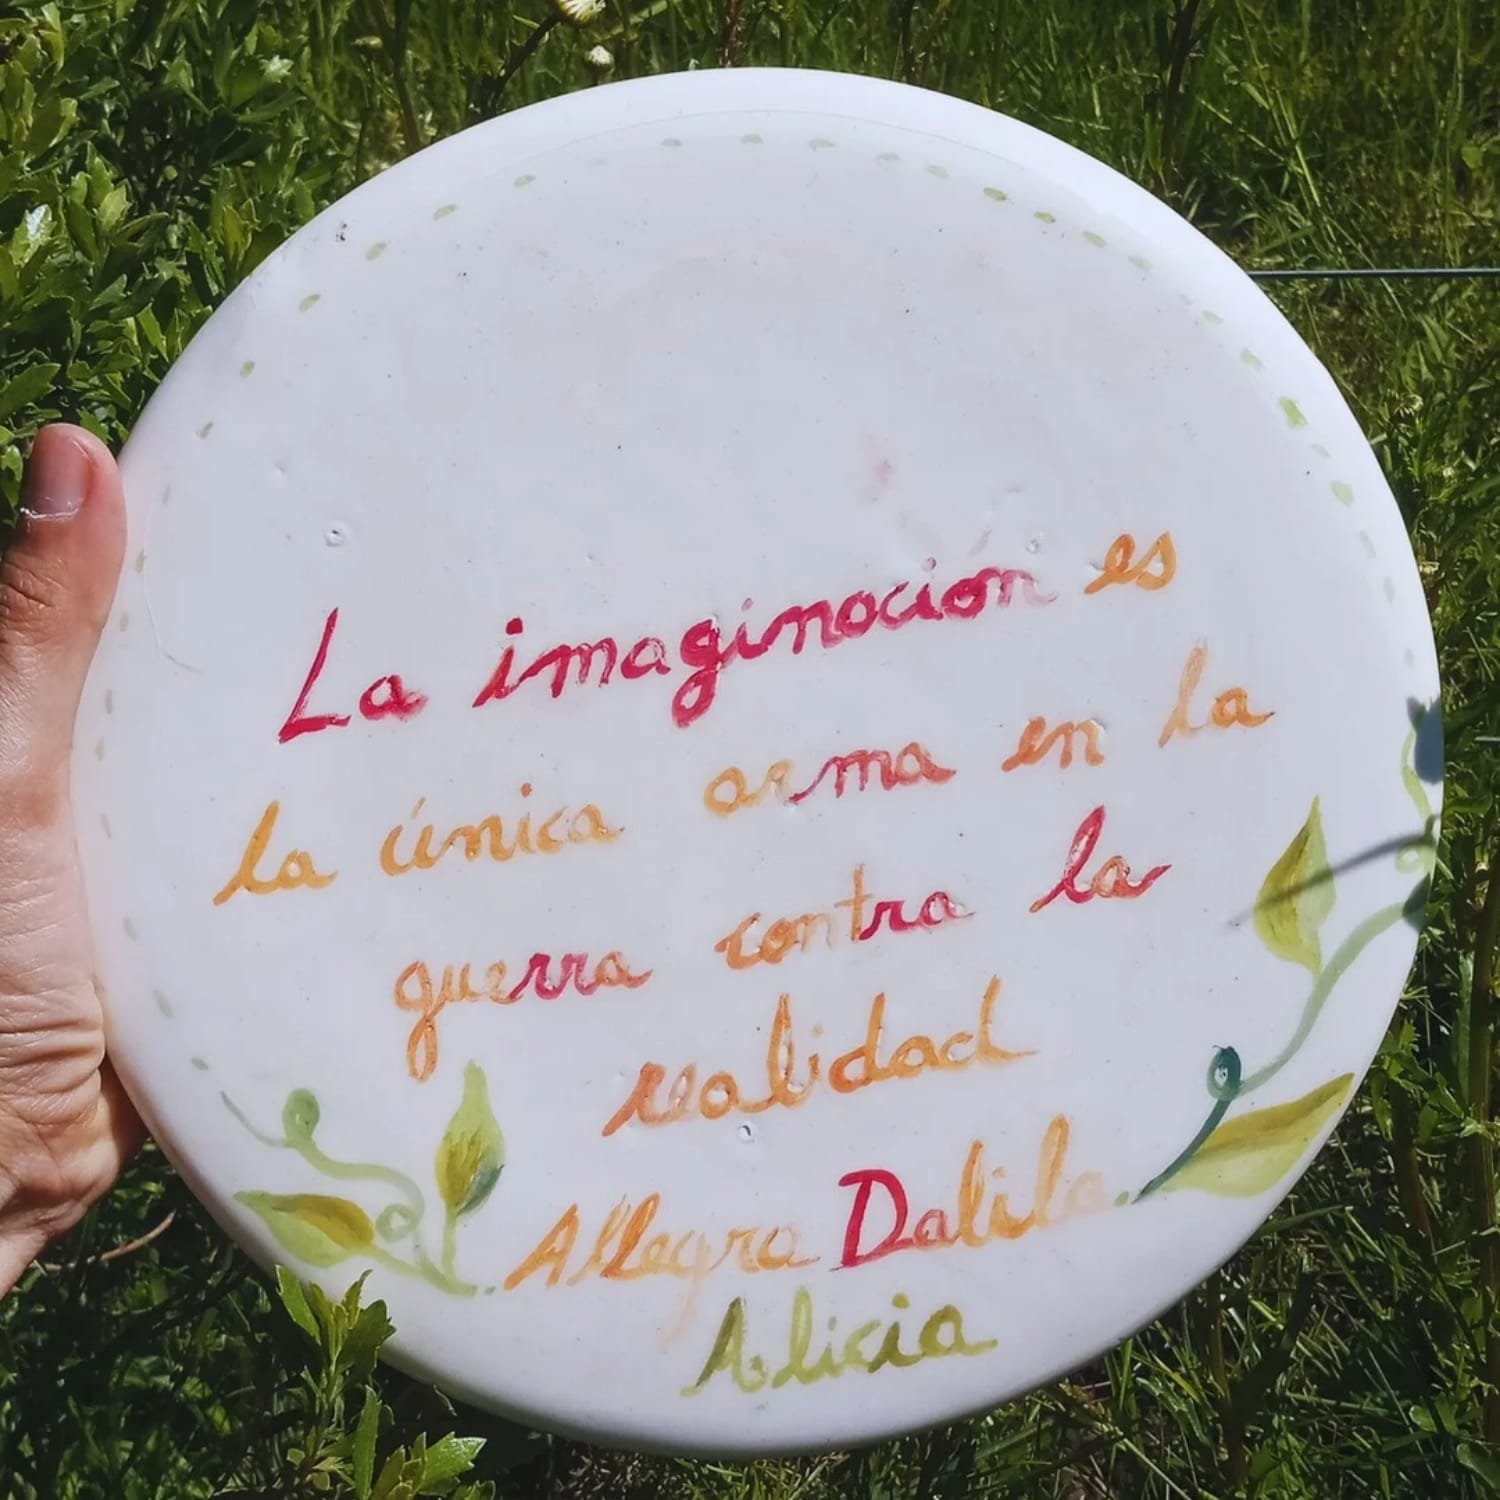 La imaginación es
la única arma en la
guerra contra la
realidad
Allegra Dalila
Alicia